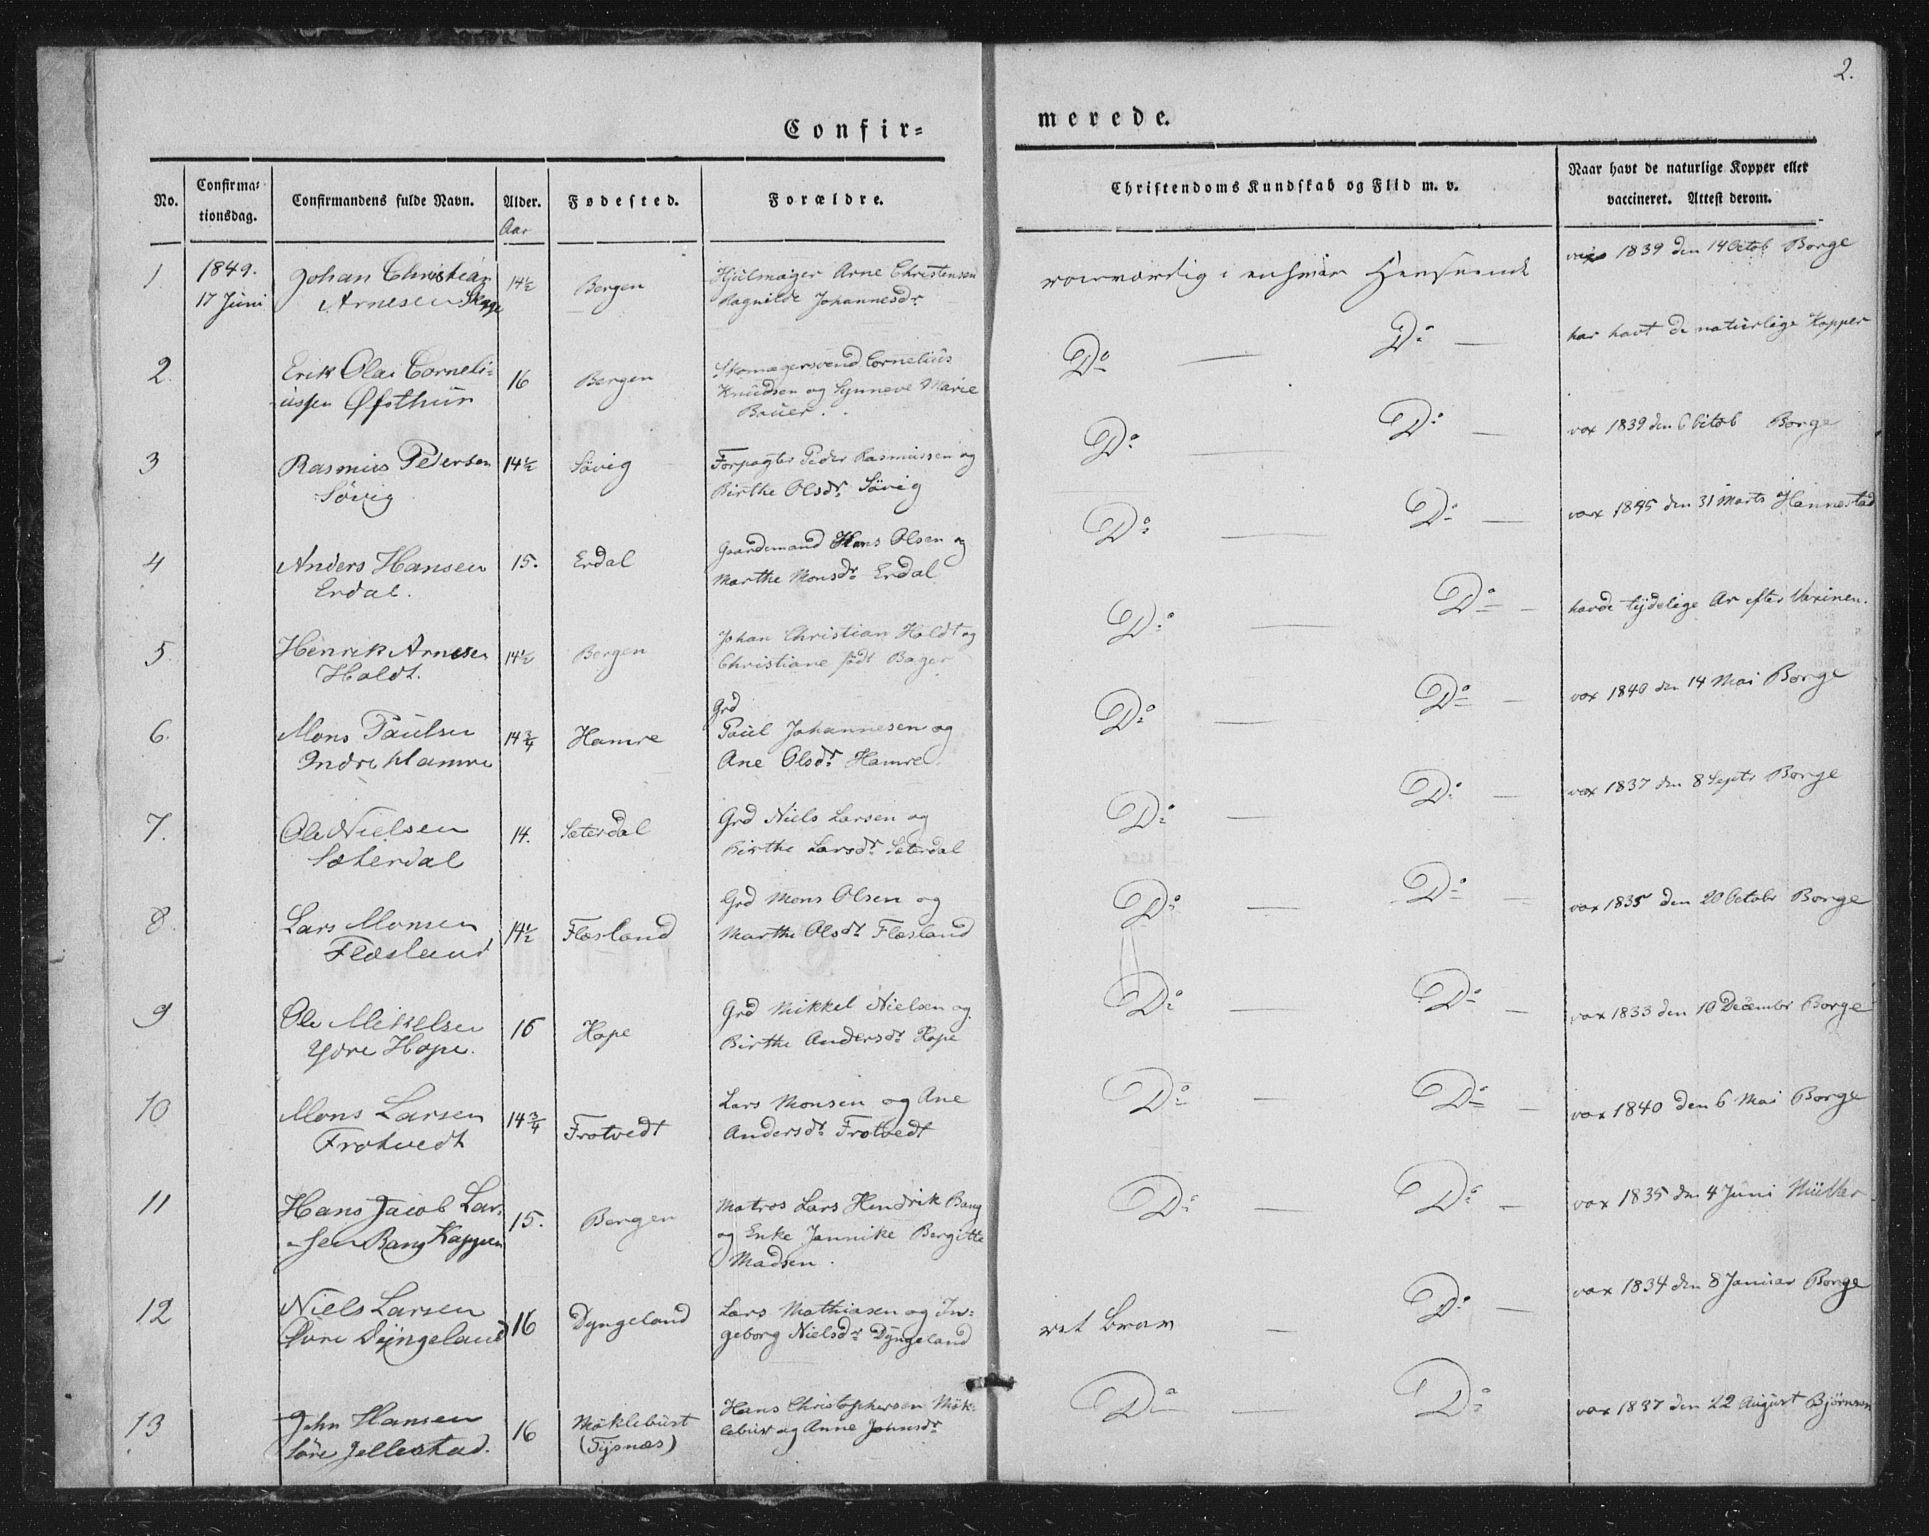 2.
Confir= merede.
No.
Confirma=
tionsdag.
Confirmandens fulde Navn.
Alder.
Aar
Fødested.
Forældre.
Christendoms Kundskab og Flid m. v.
Naar havt de naturlige Kopper eller
vaccineret. Attest derom.
1 1849. Johan Christian 14½ Bergen Hjulmager Arne Christensen
17 Juni Arnesen Ragnilde Johannesdr
roesværdig i enhver Henseende vax 1839 den 14 Octob Borge
2. Erik Olai Corneli= 16 Bergen Skomagersvend Cornelius
ussen Øfsthun Knudsen og Synneve Marie
Bauer.
Do — Do — har havt de naturlige Kopper
3 Rasmus Pedersen 14½ Søvig Forpagter Peder Rasmussen og
Søvig Birthe Olsdr Søvig
Do — Do — vax 1839 den 6 Octob Borge
4 Anders Hansen 15. Erdal Gaardmand Hans Olsen og
Erdal. Marthe Monsdr Erdal
Do — Do — vax 1845 den 31 Marts Hannestad
5 Henrik Arnesen 14½ Bergen Johan Christian Holdt og
Holdt. Christiane født Bager
Do — Do — havde tydelige Ar efter Vaxinen.
6. Mons Paulsen 14¾ Hamre Grd
Indre Hamre Paul Johannesen og
Ane Olsdr Hamre
Do — Do — vax 1840 den 14 Mai Borge
7. Ole Nielsen 14. Sæterdal Grd Niels Larsen og
Sæterdal Birthe Larsdr Sæterdal
Do — Do — vax 1837 den 8 Septr Borge
8. Lars Monsen 14½ Flæsland Grd Mons Olsen og
Flæsland Marthe Olsdr Flæsland
Do — Do — vax 1835 den 20 Octobr Borge
9 Ole Mikelsen 16 Hope Grd Mikkel Nielsen og
Ydre Hope. Birthe Andersdr Hope
Do — Do — vax 1833 den 10 Decembr Borge
10 Mons Larsen 14¾ Frotvedt Lars Monsen og Ane
Frotvedt Andersdr Frotvedt
Do — Do — vax 1840 den 6 Mai Borge
11 Hans Jacob Lar= 15. Bergen Matros Lars Hendrik Bang
sen Bang Kappen og Enke Jannike Bergitte
Madsen.
Do — Do — vax 1835 den 4 Juni Müller
12 Niels Larsen 16 Dyngeland Lars Mathiasen og In=
Øvre Dyngeland geborg Nielsdr Dyngeland
ret brav — Do — vax 1834 den 8 Januar Borge
13 John Hansen 16 Møklebust Hans Christophersen Møk=
Søre Jellestad. (Tysnæs) lebust og Anne Johnsdr
Do — Do vax 1837 den 22 August Bjørnsen